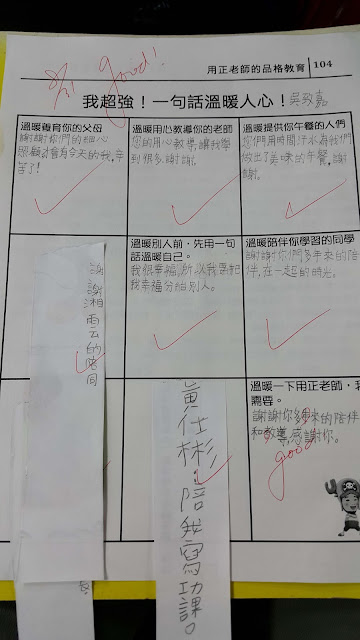 good!
用正老師的品格教育 104
我超強!一句話溫暖人心!吳致嘉
溫暖養育你的父母
謝謝你們的細心
照顧才會有今天的我,辛
苦了!
溫暖用心教導你的老師
您的用心教導,讓我學
到很多,謝謝。
溫暖提供你午餐的人們
您們用時間汗水為我們
做出了美味的午餐,謝
謝。
謝謝湘雲的陪同
溫暖別人前,先用一句
話溫暖自己。
我很幸福,所以我要把
我幸福分給別人。
溫暖陪伴你學習的同學
謝謝你們多年來的陪
伴,在一起的時光。
黃仕彬陪我寫功課。
溫暖一下用正老師,我
需要。
謝謝你多年來的陪伴
和教導,感謝你。
good